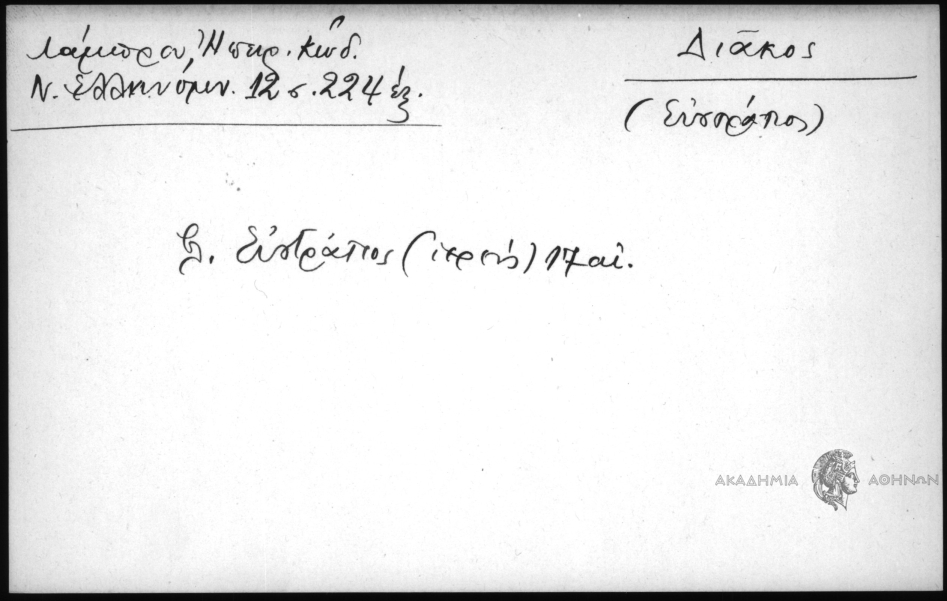 Λάμπρου, Ἠπειρ. Κώδ.
Ν. Ἑλληνομν. 12 σ. 224 ἑξ.
Διᾶκος
(Εὐστράτιος)
β. Εὐστράτιος (ἱερεύς) 17 αἰ.
ΑΚΑΔΗΜΙΑ ΑΘΗΝΩΝ